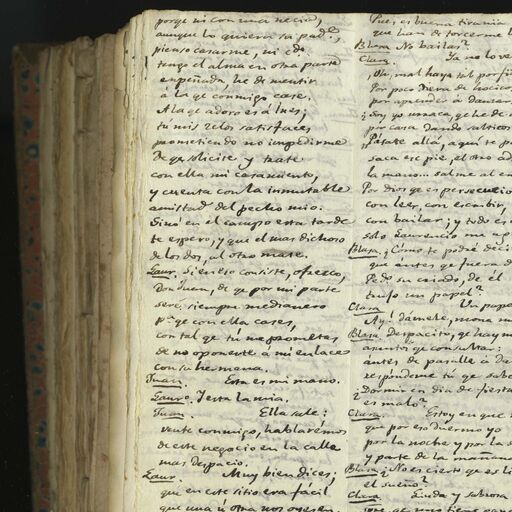 porque ni con una necia,
aunque lo quiera su pad.e,
pienso casarme, ni q.do
tengo el alma en otra parte
empeñada, he de mentir
á la q.e conmigo case.
A la q.e adoro será Ines;
tú mis zelos satisfaces
prometiendo no impedirme
De q.e solicite y trate
con ella mi casamiento,
y cuenta con la inmutable
amistad del pecho mio.
Sinó en el campo esta tarde
te espero; y que el mas dichoso
de los dos, al otro mate.
Laur. Si en eso consiste, ofrezco,
Don Juan, de q.e por mi parte
seré siempre medianero
p.a q.e con ella cases,
con tal q.e tu me prometas
de no oponerte á mi enlace
con su hermana.
Juan. Esta es mi mano.
Laur.o Y esta la mia.
Juan. Ella sale:
vente conmigo, hablarémos
de este negocio en la calle
mas despacio.
Laur. Muy bien dices,
que en este sitio era fácil
que una ú otra nos oyesen.
Pues es buena tirania
que han de torcerme l
Blasa. No bailas?
Clara. Ya no lo ve
Oh, mal haya tal porfia
Por poco diera de hocico
por aprender á danzar
¿Soy yo urraca, q.e he de a
por casa dando saltico
Pásate allá, aquí te p
saca ese pie, el otro ad
la mano... salme al en
Por dios q.e es persecucion
con leer, con escribir,
con bailar; y todo es
solo Laurencio me ag
Blasa. ¿Cómo te podré deci
que ántes q.e fuera d
Pedro su criado, de él
trujo un papel?
Clara. Un pape
Ay! dámele, mona mi
Blasa. Despacito, q.e hay m
asuntos q.e consultar:
ántes de pasalle á da
respóndeme tú q.e sabe
¿Dormir en dia de fiesta
es malo?
Clara. Estoy en que
que por eso duermo yo
por la noche y por la d
y parte de la mañana
Blasa. ¿No es cierto q.e es li
el sueño?
Clara. Linda y sabrosa